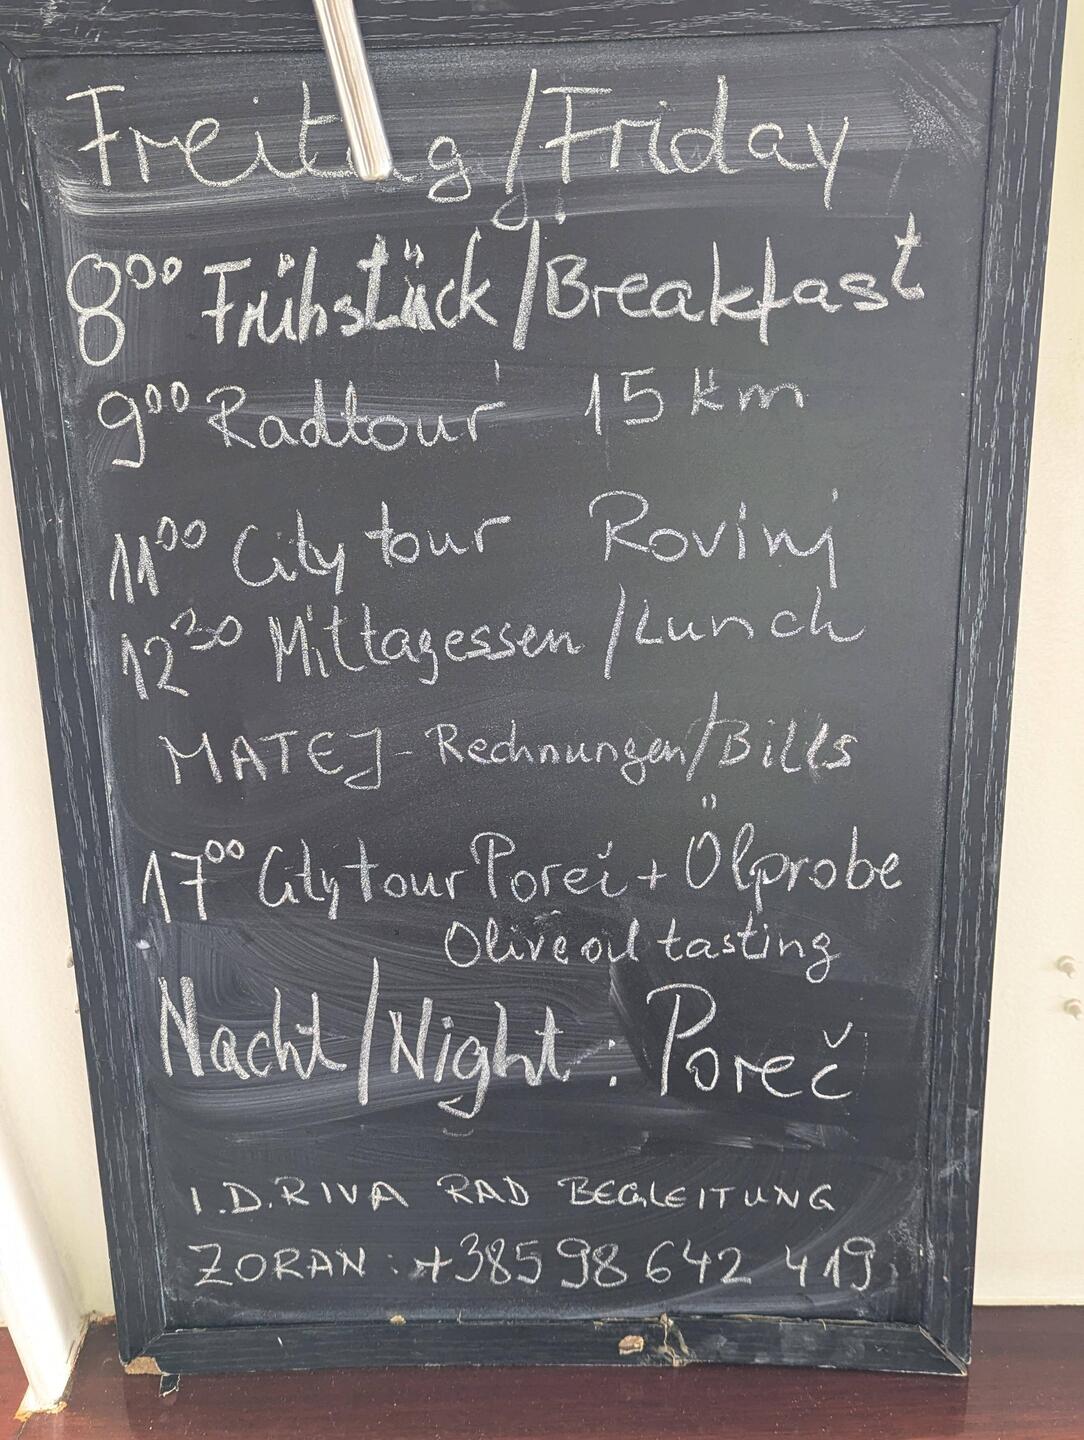 Freitag/Friday
8⁰⁰ Frühstück/Breakfast
9⁰⁰ Radtour 15 km
11⁰⁰ City tour Rovinj
12³⁰ Mittagessen/Lunch
MATEJ - Rechnungen/Bills
17⁰⁰ City tour Poreč + Ölprobe
Olive oil tasting
Nacht/Night: Poreč
I.D.RIVA RAD BEGLEITUNG
ZORAN: +385 98 642 419